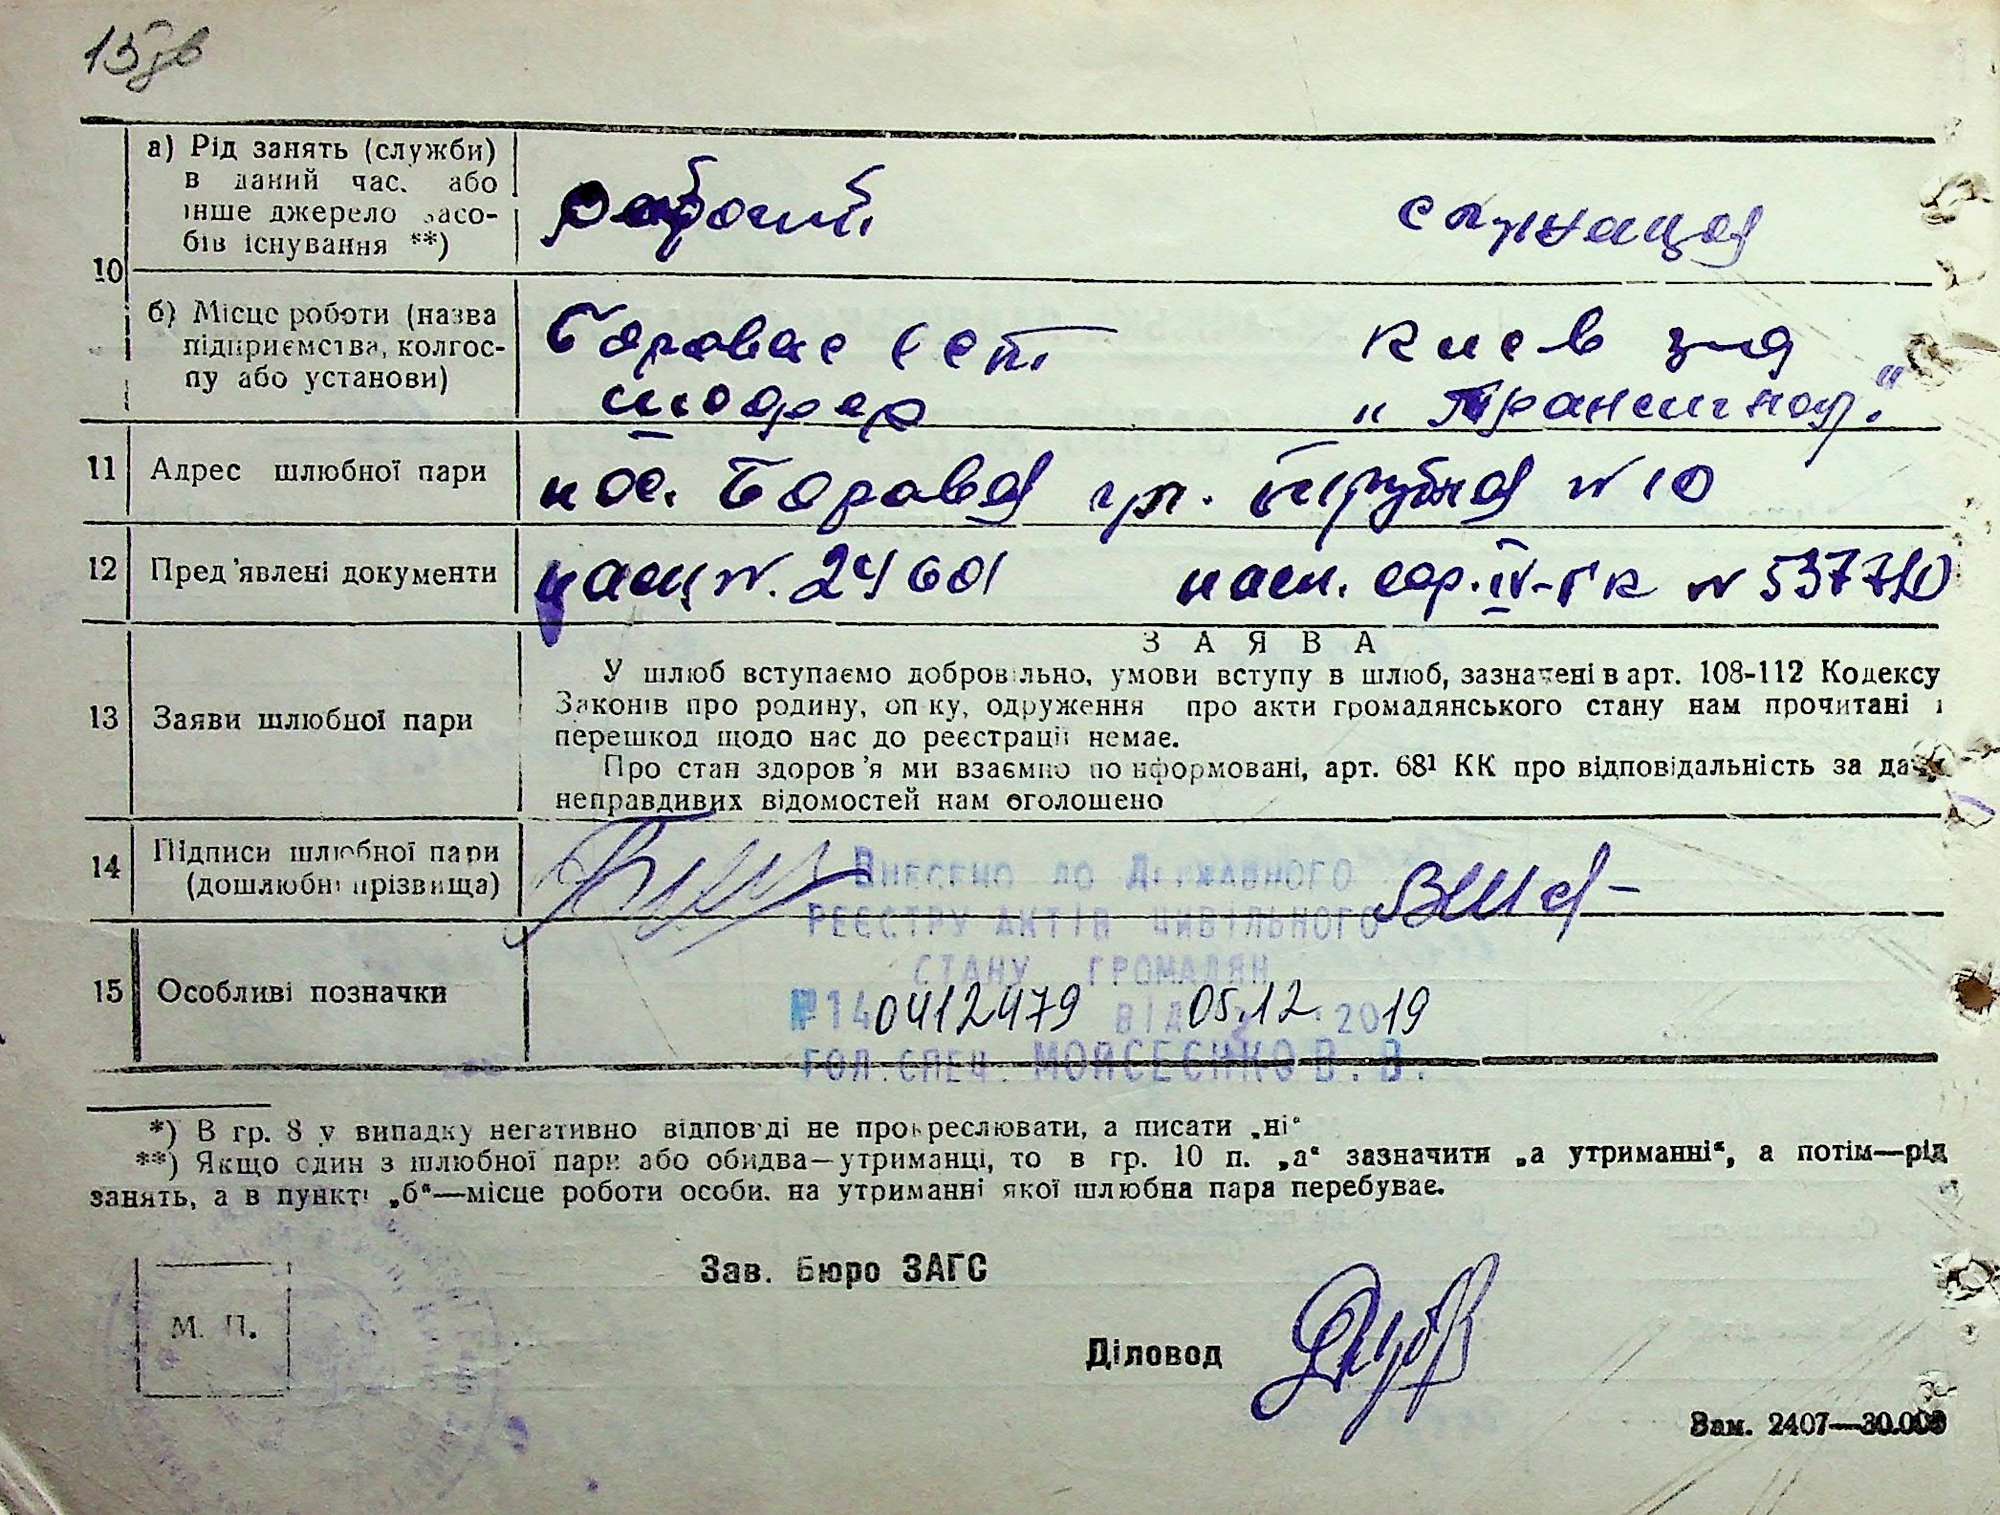 15зв
10
а) Рід занять (служби)
в даний час. або
інше джерело засо-
бів існування **)
рабочий
служащая
б) Місце роботи (назва
підприємства, колгос-
пу або установи)
Боровая
шофер
Киев з-д
"
11 Адрес шлюбної пари
пос. Боровая № 10
12 Пред'явлені документи
№ 24601
сер. IV- № 537710
13 Заяви шлюбної пари
ЗАЯВА
У шлюб вступаємо добровільно, умови вступу в шлюб, зазначені в арт. 108-112 Кодексу
Законів про родину, опіку, одруження про акти громадянського стану нам прочитані і
перешкод щодо нас до реєстрації немає.
Про стан здоров'я ми взаємно поінформовані, арт. 68¹ КК про відповідальність за дачу
неправдивих відомостей нам оголошено
14 Підписи шлюбної пари
(дошлюбні прізвища)
Внесено до Державного
реєстру актів цивільного
стану громадян
№ 140412479 від 05.12.2019
Гол. спец. Мойсеєнко В. В.
15 Особливі позначки
*) В гр. 8 у випадку негативно відповіді не прокреслювати, а писати „ні“
**) Якщо один з шлюбної пари або обидва—утриманці, то в гр. 10 п. „а“ зазначити „а утриманні“, а потім—рід
занять, а в пункті „б“—місце роботи особи. на утриманні якої шлюбна пара перебуває.
Зав. Бюро ЗАГС
М. П.
Діловод
Зам. 2407—30.000